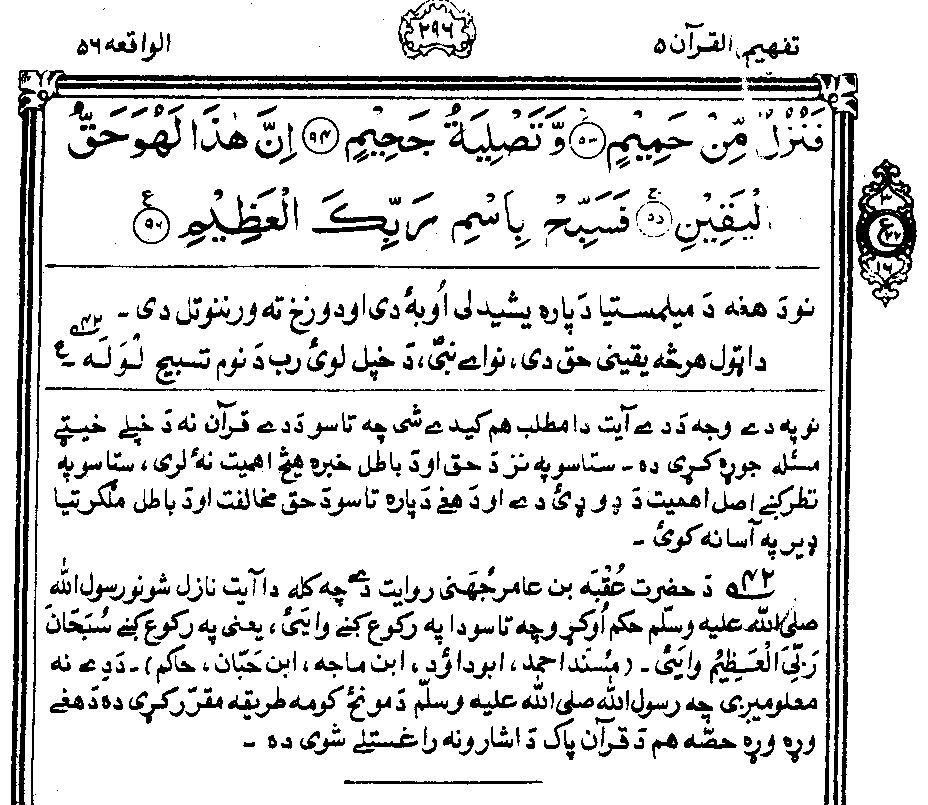 تفهیم القرآن ۵
۲۹۶
الواقعه ۵۶
فَنُزُلٌ مِّنْ حَمِيْمٍ ۝۹۳ وَّ تَصْلِيَةُ جَحِيْمٍ ۝۹۴ اِنَّ هٰذَا لَهُوَ حَقُّ
الْيَقِيْنِ ۝۹۵ فَسَبِّحْ بِاسْمِ رَبِّكَ الْعَظِيْمِ ۝۹۶
ع
۳
۲۲
۱۶
نو دَ هغه دَ میلمستیا دَ پاره یشیدلی اُوبهٔ دی او دوزخ ته ورننوتل دی ۔
دا ټول هرڅه یقینی حق دی، نو اے نبیؐ، دَ خپل لویٔ رب دَ نوم تسبیح لَوَلَه ۴۲ ۔ ع
نو په دے وجه دَ دے آیت دا مطلب هم کیدے شی چه تاسو دَ دے قرآن نه دَ خپلے خیټے
مسئله جوړه کړی ده ۔ ستاسو په نز دَ حق او دَ باطل خبره هیڅ اهمیت نهٔ لری، ستاسو په
نظر کښے اصل اهمیت دَ ډوډیٔ دے او دَ هغے دَ پاره تاسو دَ حق مخالفت او دَ باطل ملګرتیا
ډیر په آسانه کویٔ ۔
۴۲ دَ حضرت عُقبَه بن عامر جُهَنی روایت دے چه کله دا آیت نازل شو نو رسول الله
صلی الله علیه وسلّم حکم اُوکړو چه تاسو دا په رکوع کښے وایٔیٔ، یعنی په رکوع کښے سُبْحَانَ
رَبِّیَ الْعَظِیْمُ وایٔیٔ ۔ (مُسند احمد، ابو داؤد، ابن ماجه، ابن حَبّان، حاکم) ۔ دَ دے نه
معلومیږی چه رسول الله صلی الله علیه وسلّم دَ مونځ کومه طریقه مقرّر کړی ده دَ هغے
وړه وړه حصّه هم دَ قرآن پاک دَ اشارو نه راغستلے شوی ده ۔